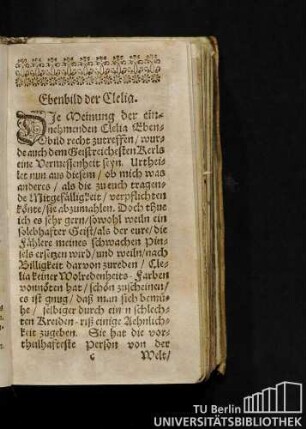 Ebenbild der Clelia.
DJe Meinung der ein-
nehmenden Clelia Eben-
bild recht zutreffen / wur-
de auch dem Geistreichesten Kerls
eine Vermessenheit seyn. Urthei-
let nun aus diesem / ob mich was
anderes / als die zu euch tragen-
de Mitgefälligkeit / verpflichten
könte / sie abzumahlen. Doch thue
ich es sehr gern / sowohl weiln ein
so lebhafter Geist / als der eure / die
Fählere meines schwachen Pin-
sels ersetzen wird / und weiln / nach
Billigkeit darvon zureden / Cle-
lia keiner Wolredenheits-Farben
vonnöten hat / schön zuscheinen /
es ist gnug / daß man sich bemü-
he / selbiger durch ein n schlech-
ten Kreiden-riß einige Aehnlich-
keit zugeben. Sie hat die vor-
theilhafteste Person von der
c Welt /
TU Berlin
UNIVERSITÄTSBIBLIOTHEK